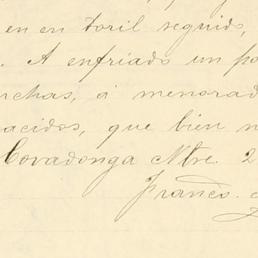 en en toril seguido,
. A enfriado un po
nchas, á menorad
acidos, que bien n
Covadonga Nbre. 2
Francs.